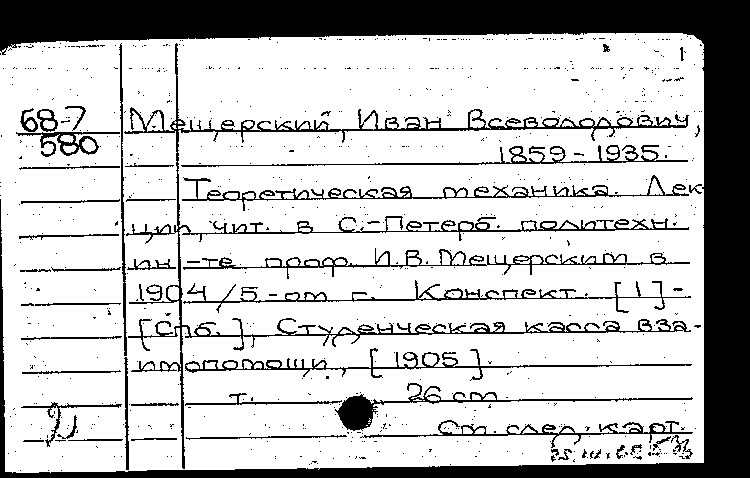 1
68-7
580
Мещерский, Иван Всеволодович,
1859-1935.
Теоретическая механика. Лек-
ции, чит. в С.-Петерб. политехн.
ин-те проф. И.В. Мещерским в
1904/5-ом г. Конспект. [1]-
[Спб.], Студенческая касса вза-
имопомощи, [1905].
т. 26 см
См. след. карт.